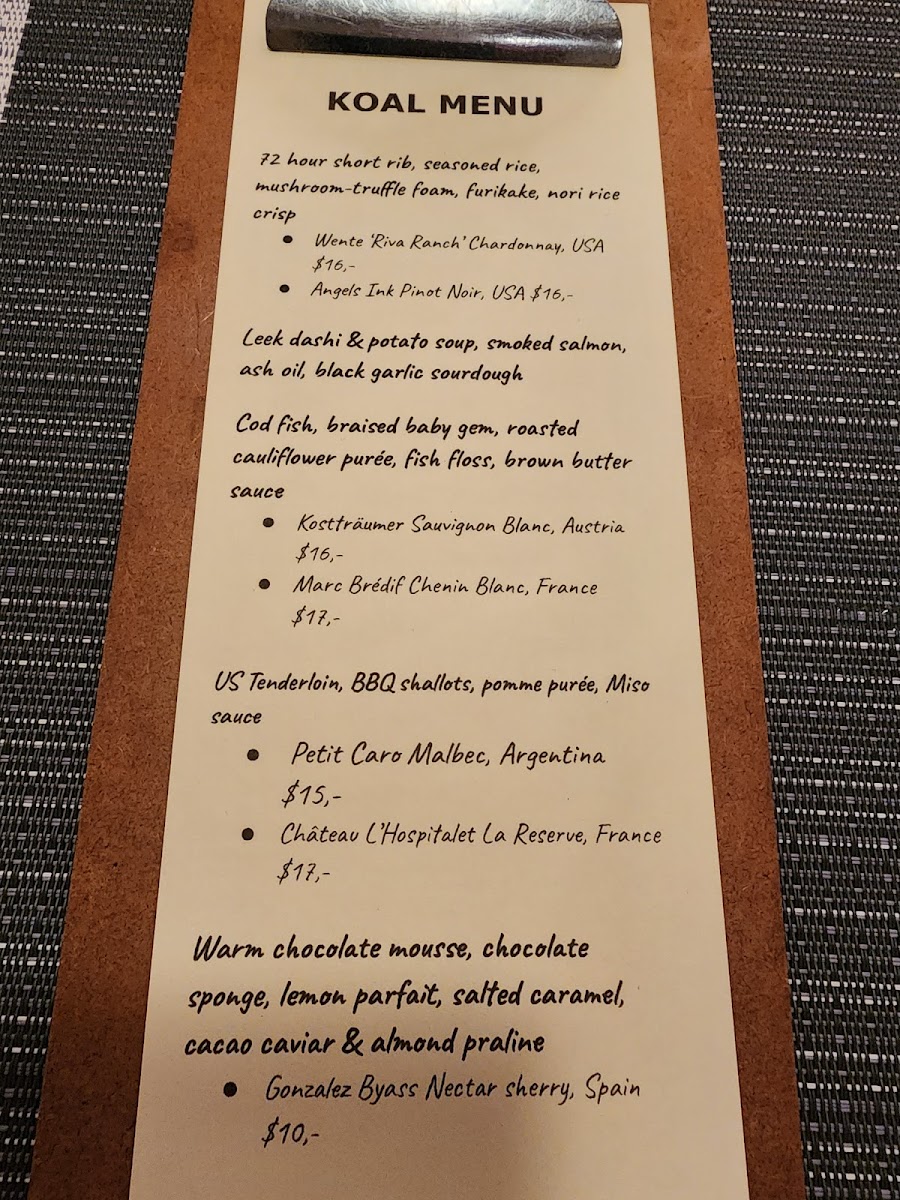 KOAL MENU
72 hour short rib, seasoned rice,
mushroom-truffle foam, furikake, nori rice
crisp
• Wente 'Riva Ranch' Chardonnay, USA
$16,-
• Angels Ink Pinot Noir, USA $16,-
Leek dashi & potato soup, smoked salmon,
ash oil, black garlic sourdough
Cod fish, braised baby gem, roasted
cauliflower purée, fish floss, brown butter
sauce
• Kostträumer Sauvignon Blanc, Austria
$16,-
• Marc Brédif Chenin Blanc, France
$17,-
US Tenderloin, BBQ shallots, pomme purée, Miso
sauce
• Petit Caro Malbec, Argentina
$15,-
• Château L'Hospitalet La Reserve, France
$17,-
Warm chocolate mousse, chocolate
sponge, lemon parfait, salted caramel,
cacao caviar & almond praline
• Gonzalez Byass Nectar sherry, Spain
$10,-